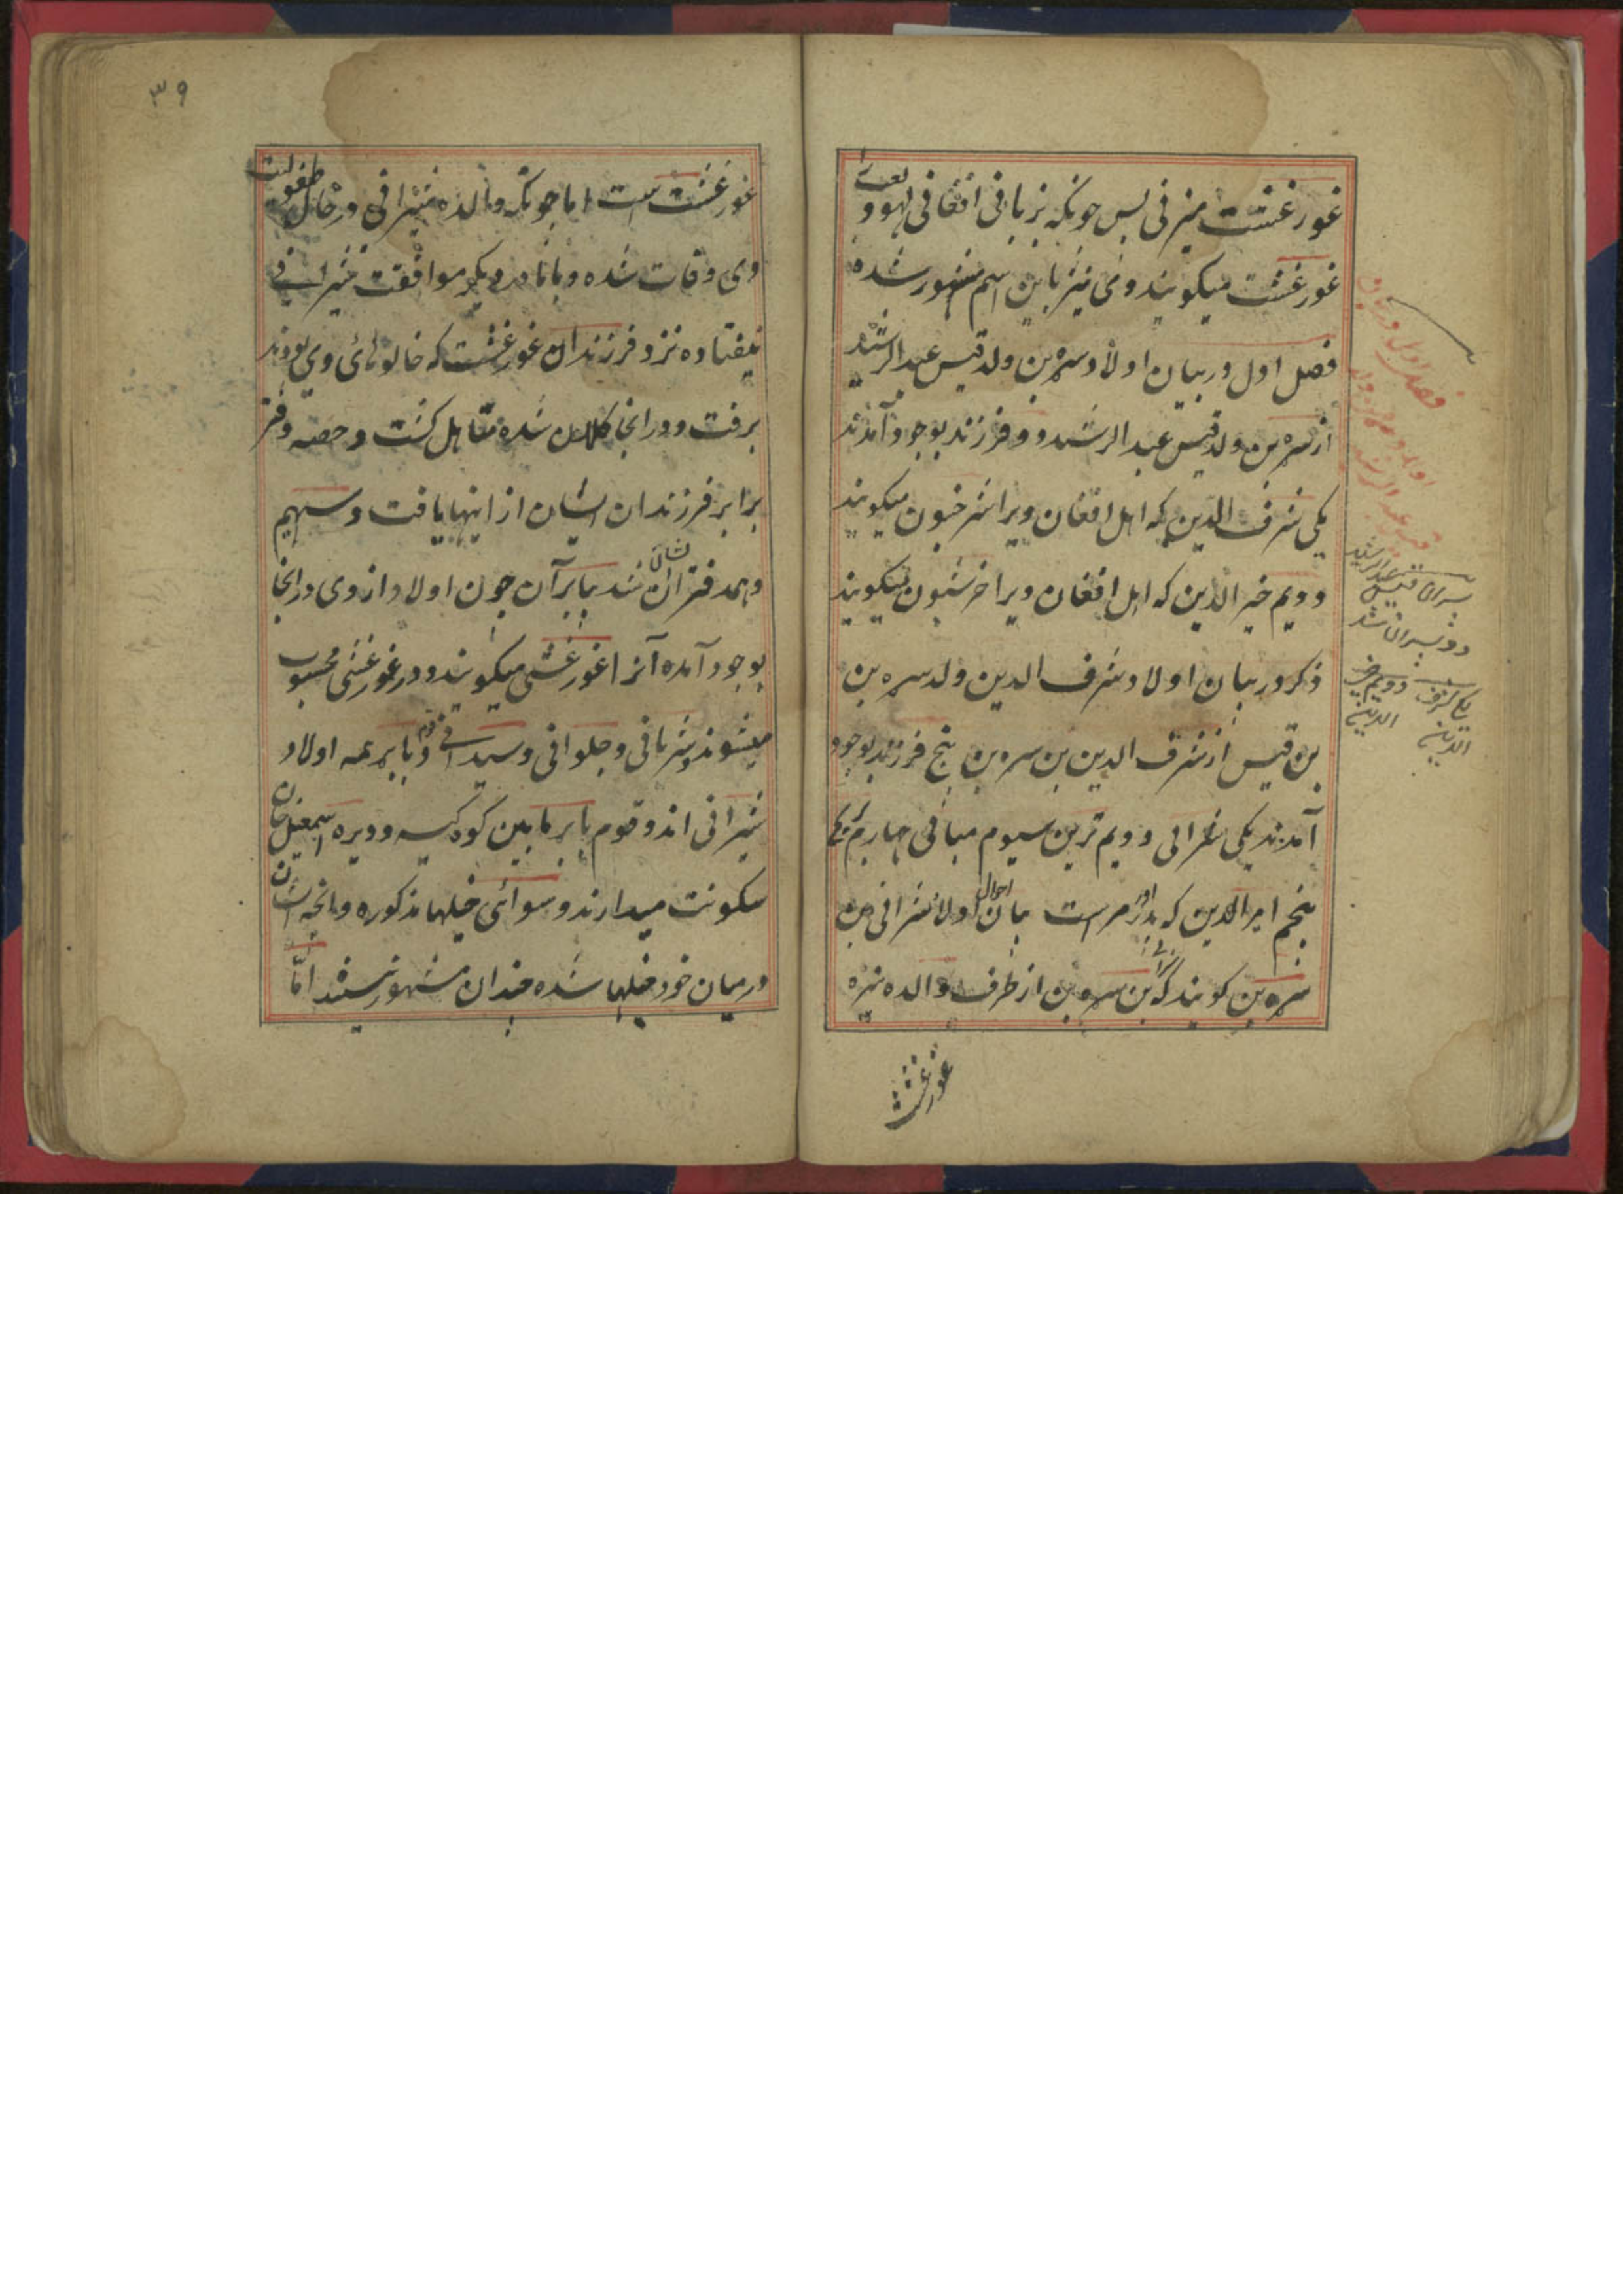 غورغشت میزنی پس چونکه بزبانی افغانی لهو و لعب را
غورغشت میکویند وی نیز باین اسم مشهور شده
فصل اول در بیان اولاد سره بن ولد قیس عبدالرشید
از سره بن ولد قیس عبدالرشید دو فرزند بوجود آمدند
یکی شرف الدین که اهل افغان ویرا شرخبون میکویند
دویم خیرالدین که اهل افغان ویرا خرشبون میکویند
ذکر در بیان اولاد شرف الدین ولد سره بن
بن قیس از شرف الدین بن سره بن پنج فرزند بوجود
آمدند یکی شرانی دویم ترین سیوم میانی چهارم بریچ
پنجم امرالدین که اورمر است بیان احوال اولاد شرانی بن
سره بن کویند که بن سره بن از طرف والده نیزه
غورغشت
فصل اول در بیان
پسران قیس عبدالرشید
دو پسران شد
یکی شرف الدین
دویم خیر الدین
۳۹
غورغشت است اما چونکه والده شیرانی در حال طفولیت
وی وفات شده و با مادر دیکر موافقت شیرانی
نیفتاده نزد فرزندان غورغشت که خالوهائی وی بودند
برفت و در انجا کلان شده متاهل کشت و حصه دفتر
برابر فرزندان ایشان از اینها یافت و سهیم
و همدفتر ایشان شد بنابر آن چون اولاد از وی در انجا
بوجود آمده آنرا غورغشتی میکویند و در غورغشتی محسوب
میشوند شیرانی و جلوانی و سیدانی و قوم بابر همه اولاد
شیرانی اند و قوم بابر مابین کوه کیسه و دیره اسمعیل خان
سکونت میدارند و سوائی خیلها مذکوره و انچه ایشان
در میان خود خیلها شده چندان مشهور نیستند امّا